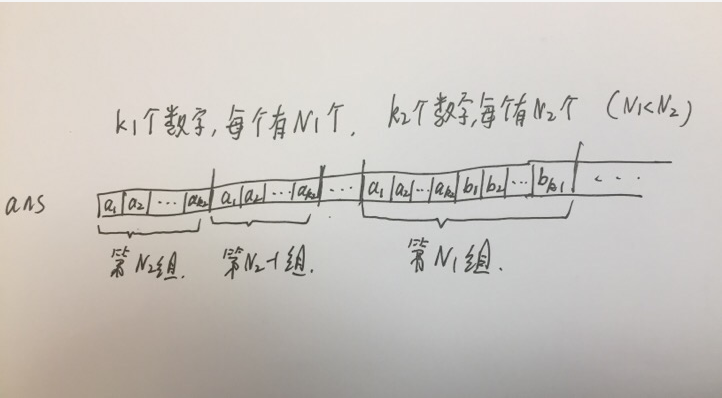 k₁个数字,每个有N₁个. k₂个数字,每个有N₂个 (N₁<N₂)
ans a₁ a₂ ··· aₖ₂ a₁ a₂ ··· aₖ₂ ··· a₁ a₂ ··· aₖ₂ b₁ b₂ ··· bₖ₁ ···
第N₂组. 第N₂-1组. 第N₁组.